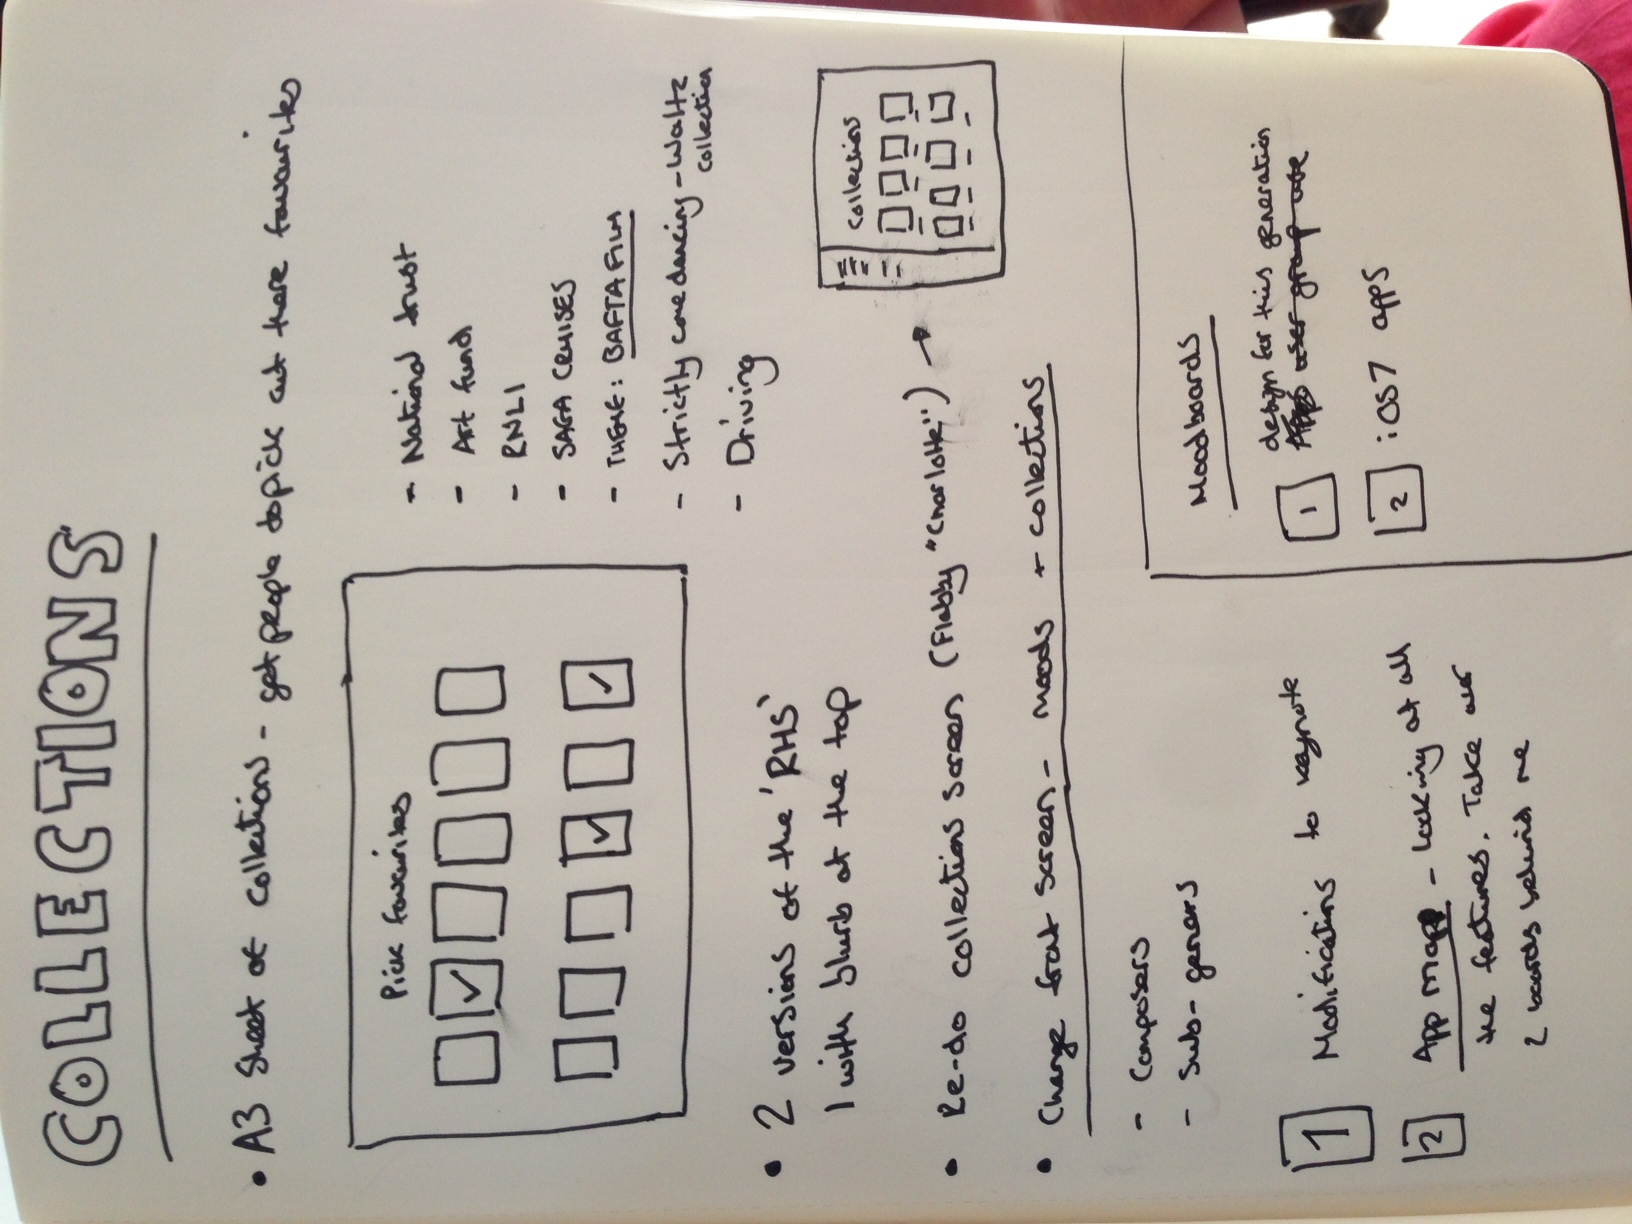 COLLECTIONS
• A3 Sheet of collections - get people to pick out there favourites
Pick favourites
- National trust
- Art fund
- RNLI
- SAGA CRUISES
- THEME: BAFTA FILM
- Strictly come dancing - Waltz
collection
- Driving
• 2 versions of the 'RHS'
1 with blurb at the top
• Re-do collections screen (Flabby "Charlotte") →
Collections
• Change front screen - moods + collections
- Composers
- Sub-geners
1 Modifications to keynote
2 App map - Looking at all
the features. Take over
2 boards behind me
Moodboards
design for this generation
1 user group use
2 iOS7 apps